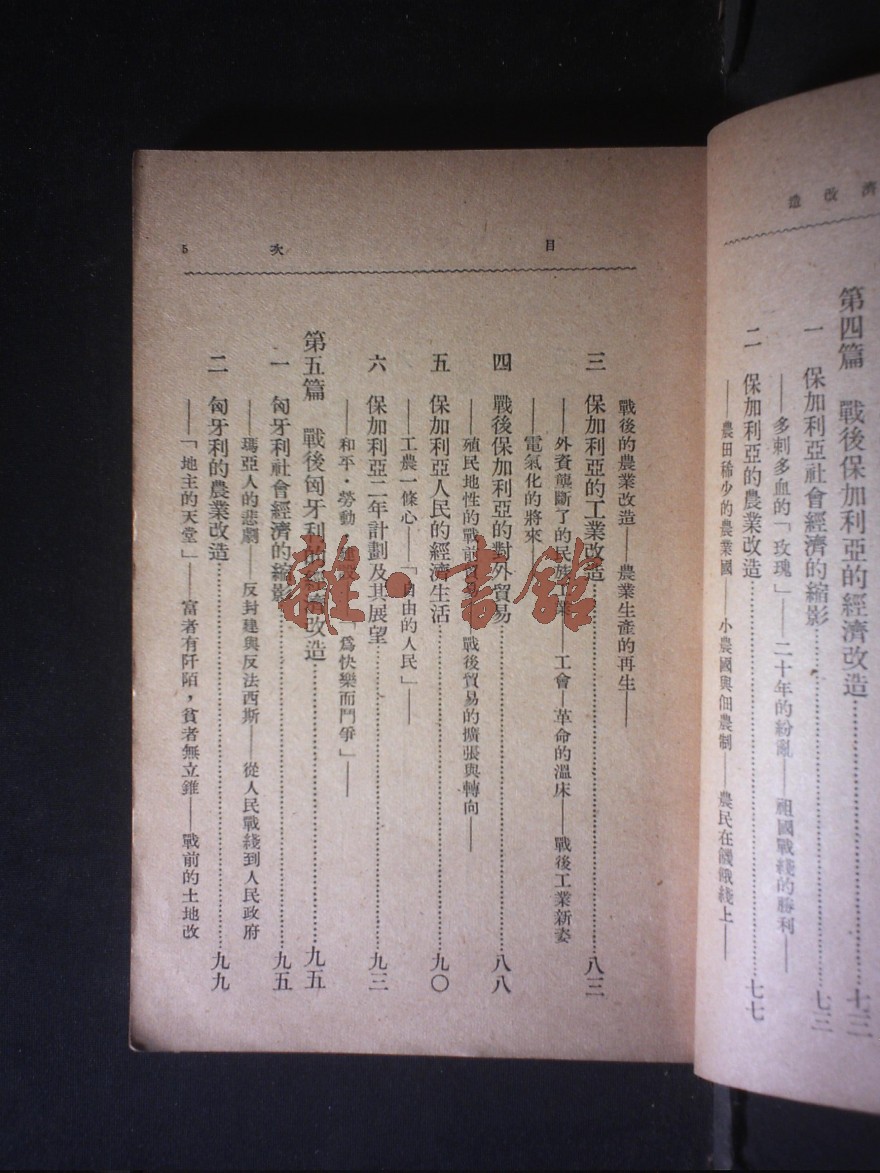 濟改造
第四篇 戰後保加利亞的經濟改造……七三
一 保加利亞社會經濟的縮影……七三
——多刺多血的「玫瑰」——二十年的紛亂——祖國戰綫的勝利——
二 保加利亞的農業改造……七七
——農田稀少的農業國——小農國與佃農制——農民在饑餓綫上——
目次 5
戰後的農業改造——農業生產的再生——
三 保加利亞的工業改造……八三
——外資壟斷了的民族工業——工會—革命的溫床——戰後工業新姿
——電氣化的將來——
四 戰後保加利亞的對外貿易……八八
——殖民地性的戰前貿易——戰後貿易的擴張與轉向——
五 保加利亞人民的經濟生活……九〇
——工農一條心——「自由的人民」——
六 保加利亞二年計劃及其展望……九三
——和平・勞動 「爲快樂而鬥爭」——
第五篇 戰後匈牙利的經濟改造……九五
一 匈牙利社會經濟的縮影……九五
——瑪亞人的悲劇——反封建與反法西斯——從人民戰綫到人民政府
二 匈牙利的農業改造……九九
——「地主的天堂」——富者有阡陌，貧者無立錐——戰前的土地改
雜・書館